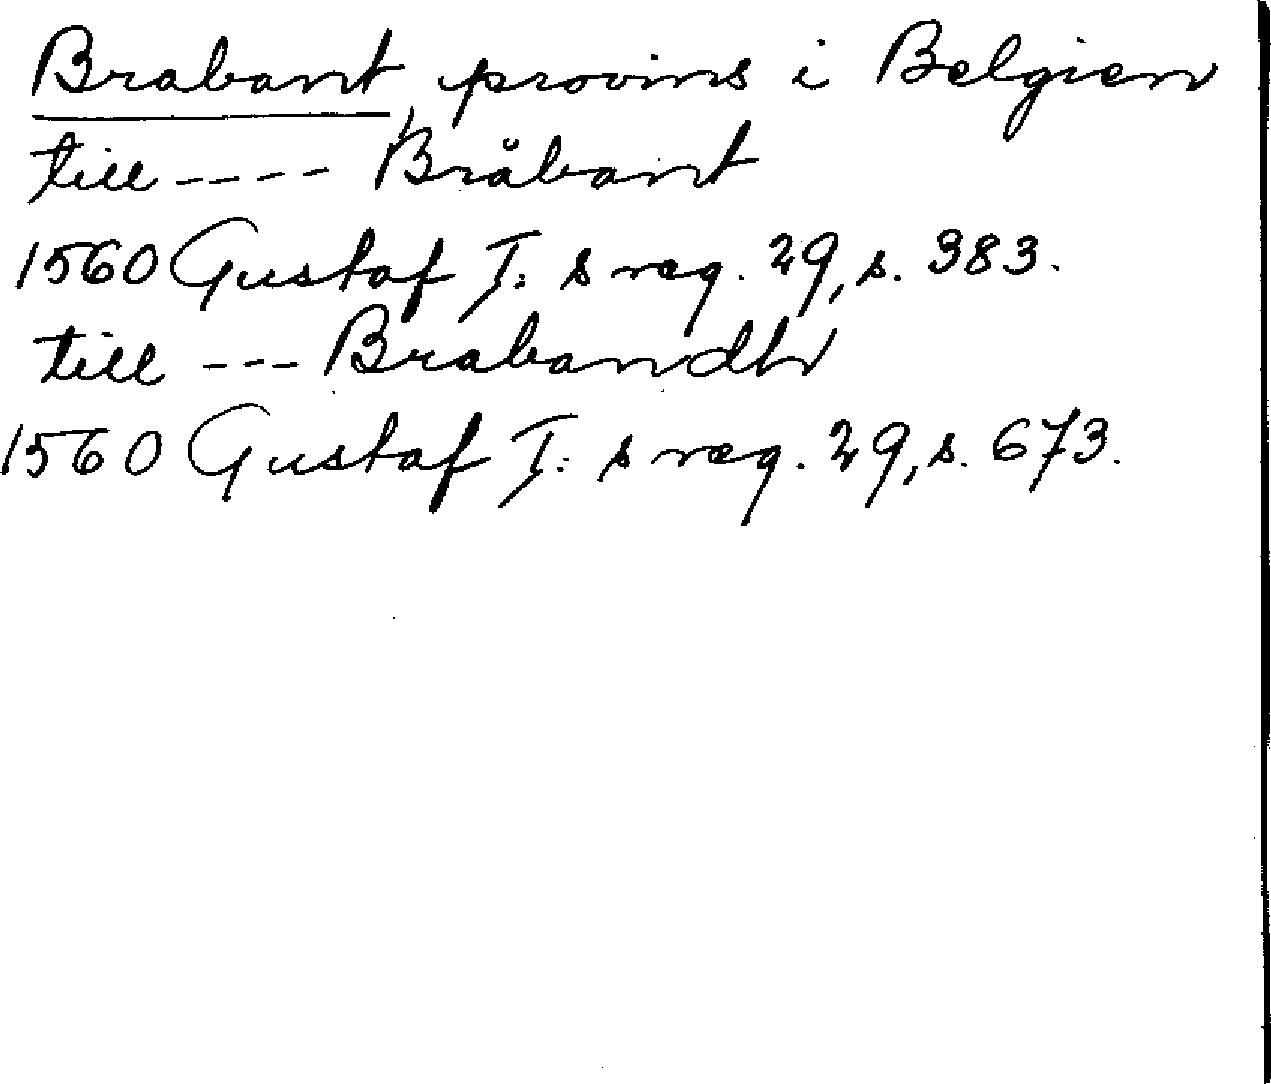 Brabant, provins i Belgien
till ---- Bråbant
1560 Gustaf I:s reg. 29, s. 383.
till --- Brabandh
1560 Gustaf I:s reg. 29, s. 673.